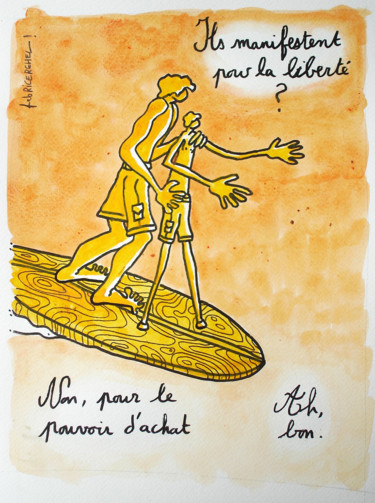 Ils manifestent
pour la liberté
?
Non, pour le
pouvoir d'achat
Ah,
bon.